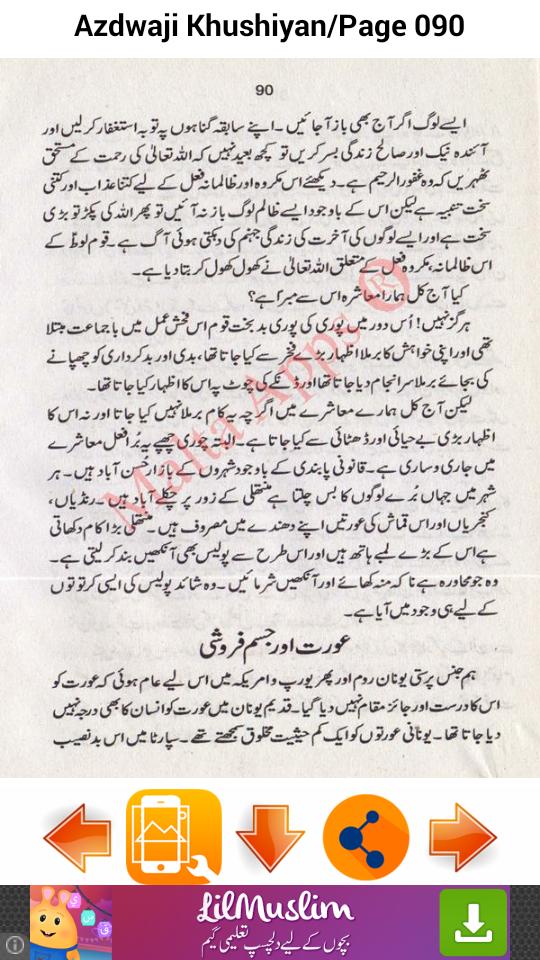 Azdwaji Khushiyan/Page 090
90
ایسے لوگ اگر آج بھی باز آ جائیں۔ اپنے سابقہ گناہوں پہ توبہ استغفار کر لیں اور
آئندہ نیک اور صالح زندگی بسر کریں تو کچھ بعید نہیں کہ اللہ تعالیٰ کی رحمت کے مستحق
ٹھہریں کہ وہ غفور الرحیم ہے۔ دیکھئے اس مکروہ اور ظالمانہ فعل کے لیے کتنا عذاب اور کتنی
سخت تنبیہ ہے لیکن اس کے باوجود ایسے ظالم لوگ باز نہ آئیں تو پھر اللہ کی پکڑ تو بڑی
سخت ہے اور ایسے لوگوں کی آخرت کی زندگی جہنم کی دہکتی ہوئی آگ ہے۔ قوم لوطؑ کے
اس ظالمانہ، مکروہ فعل کے متعلق اللہ تعالیٰ نے کھول کھول کر بتا دیا ہے۔
کیا آج کل ہمارا معاشرہ اس سے مبرا ہے؟
ہرگز نہیں! اُس دور میں پوری کی پوری بدبخت قوم اس فحش عمل میں با جماعت مبتلا
تھی اور اپنی خواہش کا برملا اظہار بڑے فخر سے کیا جاتا تھا، بدی اور بدکرداری کو چھپانے
کی بجائے برملا سرانجام دیا جاتا تھا اور ڈنکے کی چوٹ پہ اس کا اظہار کیا جاتا تھا۔
لیکن آج کل ہمارے معاشرے میں اگرچہ یہ کام برملا نہیں کیا جاتا اور نہ اس کا
اظہار بڑی بے حیائی اور ڈھٹائی سے کیا جاتا ہے۔ البتہ چوری چھپے یہ بُرا فعل معاشرے
میں جاری و ساری ہے۔ قانونی پابندی کے باوجود شہروں کے بازارِ حسن آباد ہیں۔ ہر
شہر میں جہاں بُرے لوگوں کا بس چلتا ہے منتھلی کے زور پر چکلے آباد ہیں۔ رنڈیاں،
کنجریاں اور اس قماش کی عورتیں اپنے دھندے میں مصروف ہیں۔ منتھلی بڑا کام دکھاتی
ہے اس کے بڑے لمبے ہاتھ ہیں اور اس طرح سے پولیس بھی آنکھیں بند کر لیتی ہے۔
وہ جو محاورہ ہے نا کہ منہ کھائے اور آنکھیں شرمائیں۔ وہ شائد پولیس کی ایسی کرتوتوں
کے لیے ہی وجود میں آیا ہے۔
عورت اور جسم فروشی
ہم جنس پرستی یونان روم اور پھر یورپ و امریکہ میں اس لیے عام ہوئی کہ عورت کو
اس کا درست اور جائز مقام نہیں دیا گیا۔ قدیم یونان میں عورت کو انسان کا بھی درجہ نہیں
دیا جاتا تھا۔ یونانی عورتوں کو ایک کم حیثیت مخلوق سمجھتے تھے۔ سپارٹا میں اس بدنصیب
Malta Apps ®
LilMuslim
بچوں کے لیے دلچسپ تعلیمی گیم